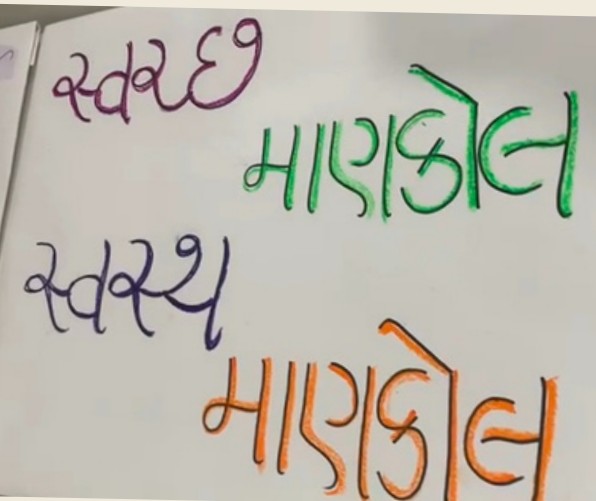 સ્વરછ
માણકોલ
સ્વસ્થ
માણકોલ